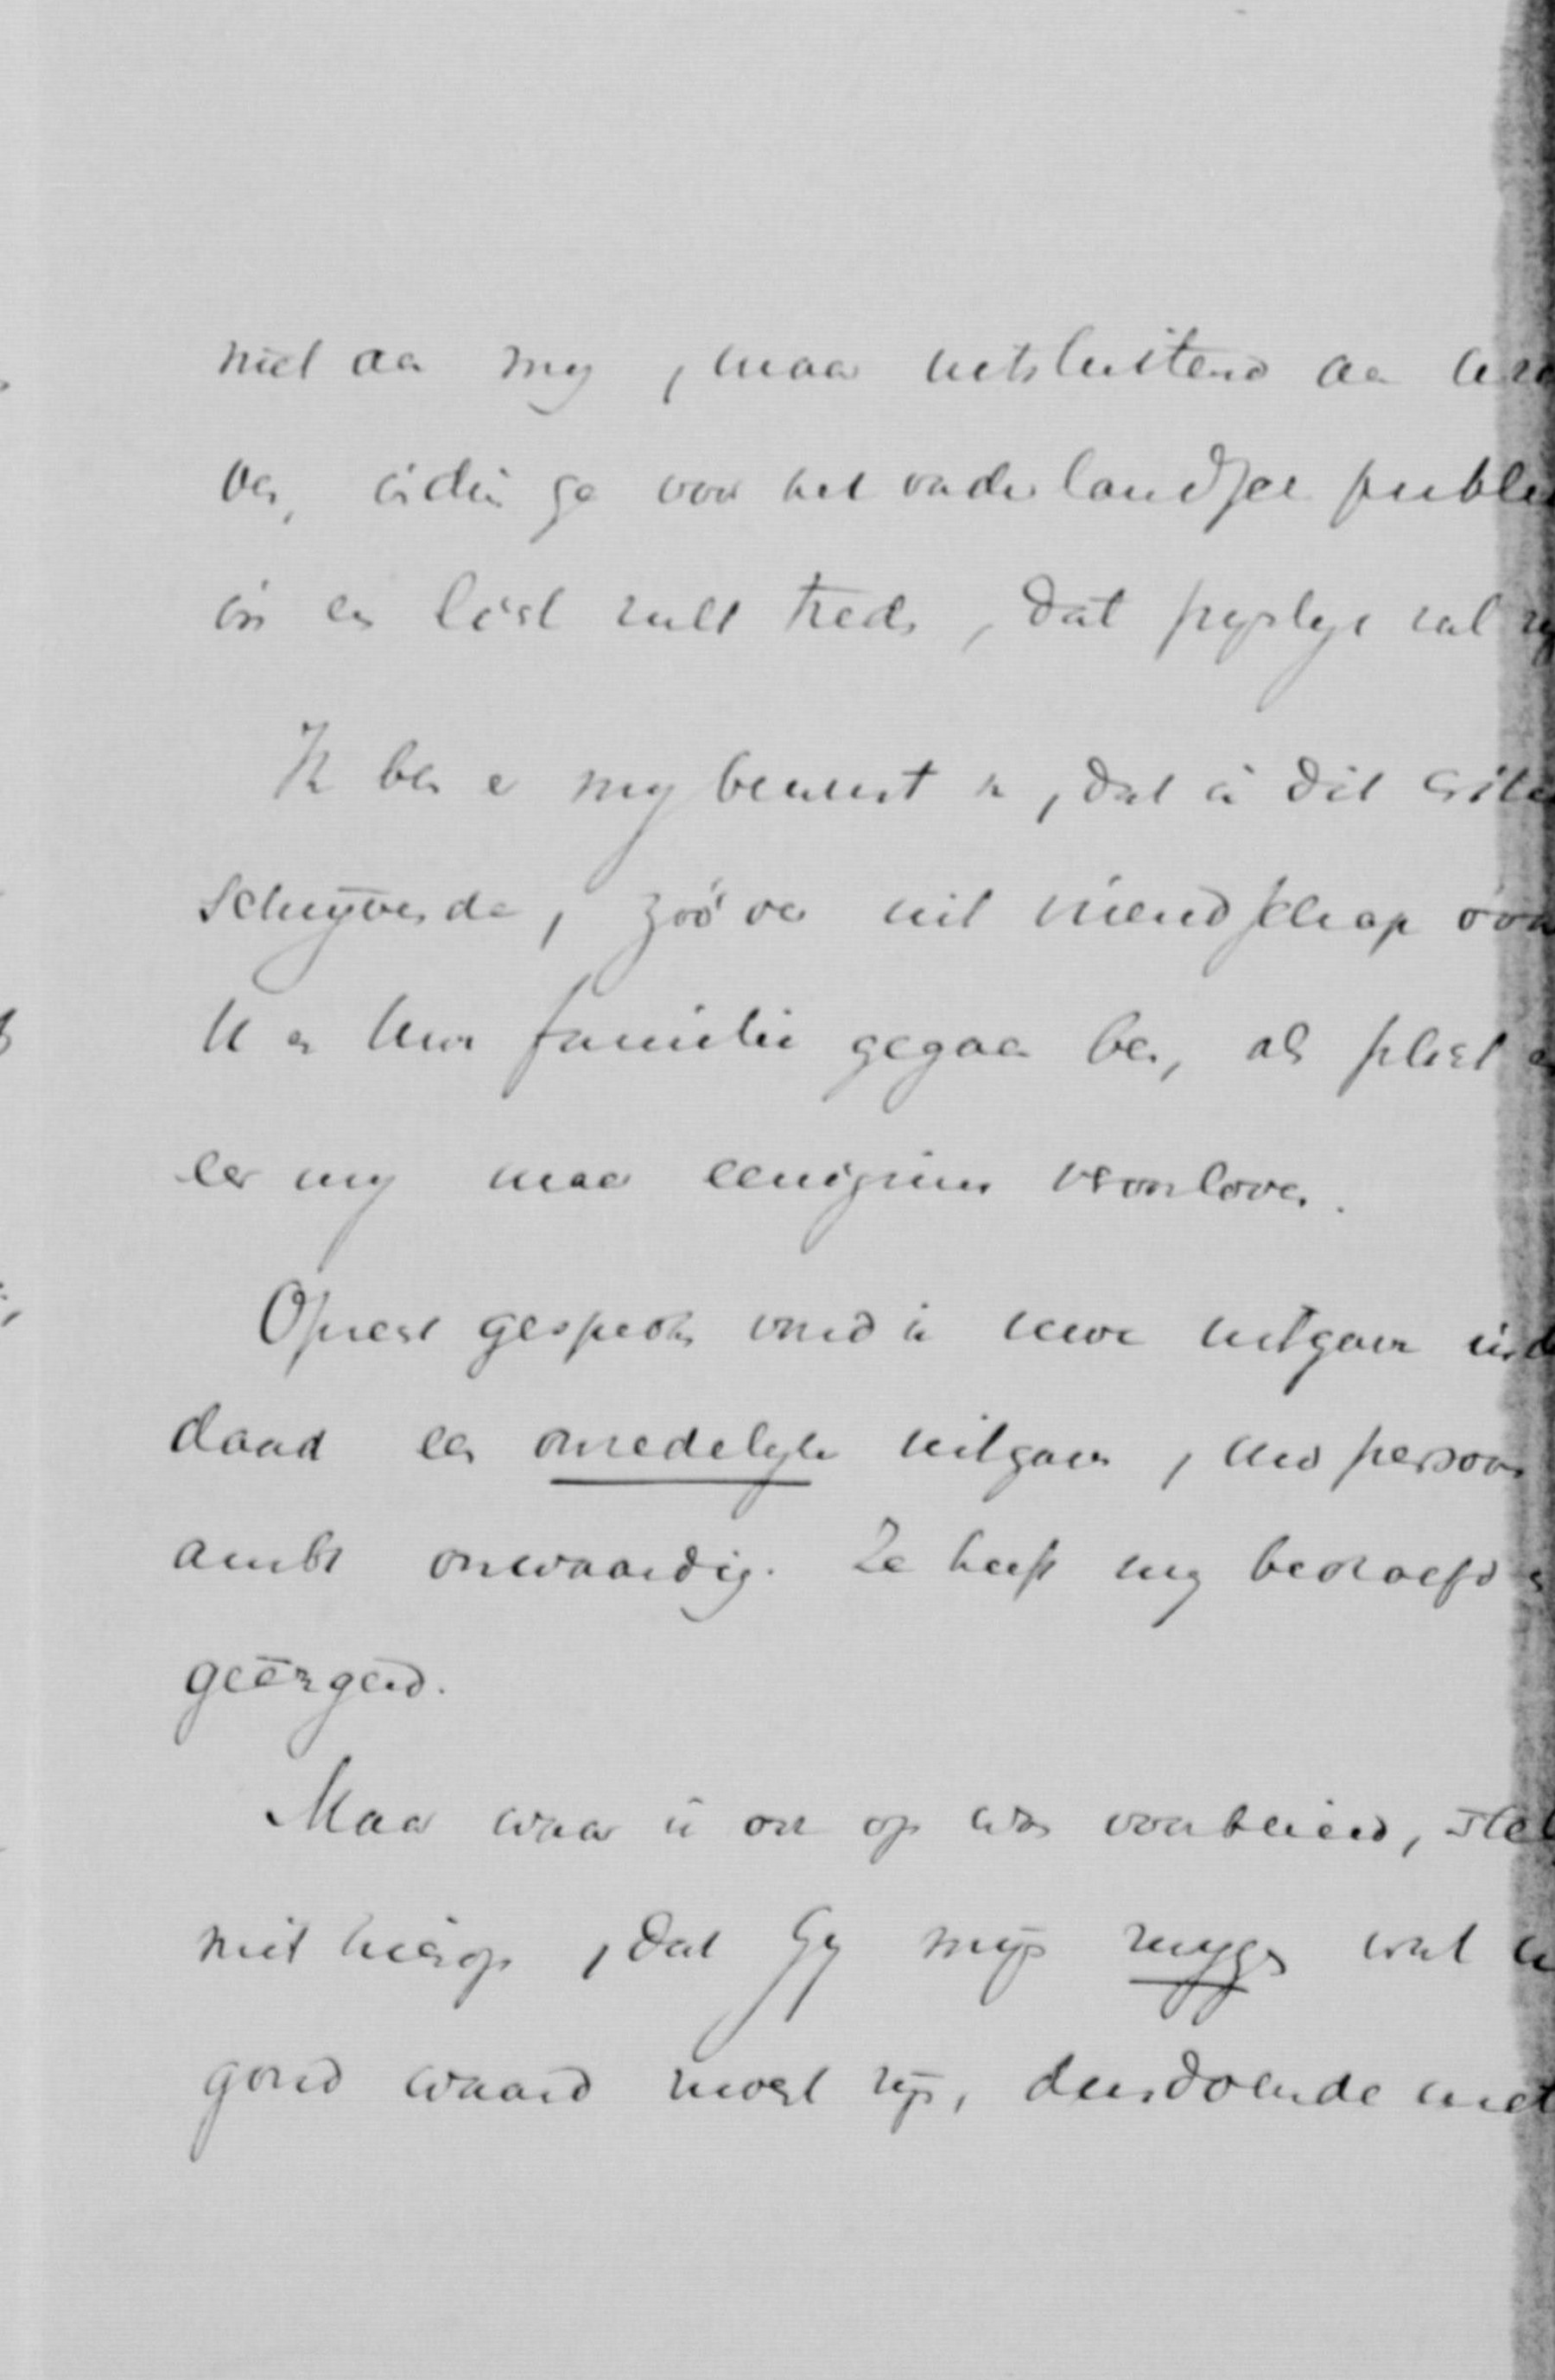 niet aan my, maar uitsluitend aan
u, indien ge voor het vaderlandsche publie
in een licht zult treden, dat pynlyk zal zy
Ik ben er my bewust van, dat ik dit
schryvende, zoo ver uit vriendschap voor
U en Uw familie gegaan ben, als plicht en
eer my maar eenigszins veroorloven.
Oprecht gesproken vind ik uwe uitgave inder
daad een onredelyke uitgave, uw persoon
ambt onwaardig. Ze heeft my bedroefd en
geërgerd.
Maar waar ik ook op was voorbereid,
niet hierop, dat Gy myn zwygen wat
goud waard moest zyn, desdoende met